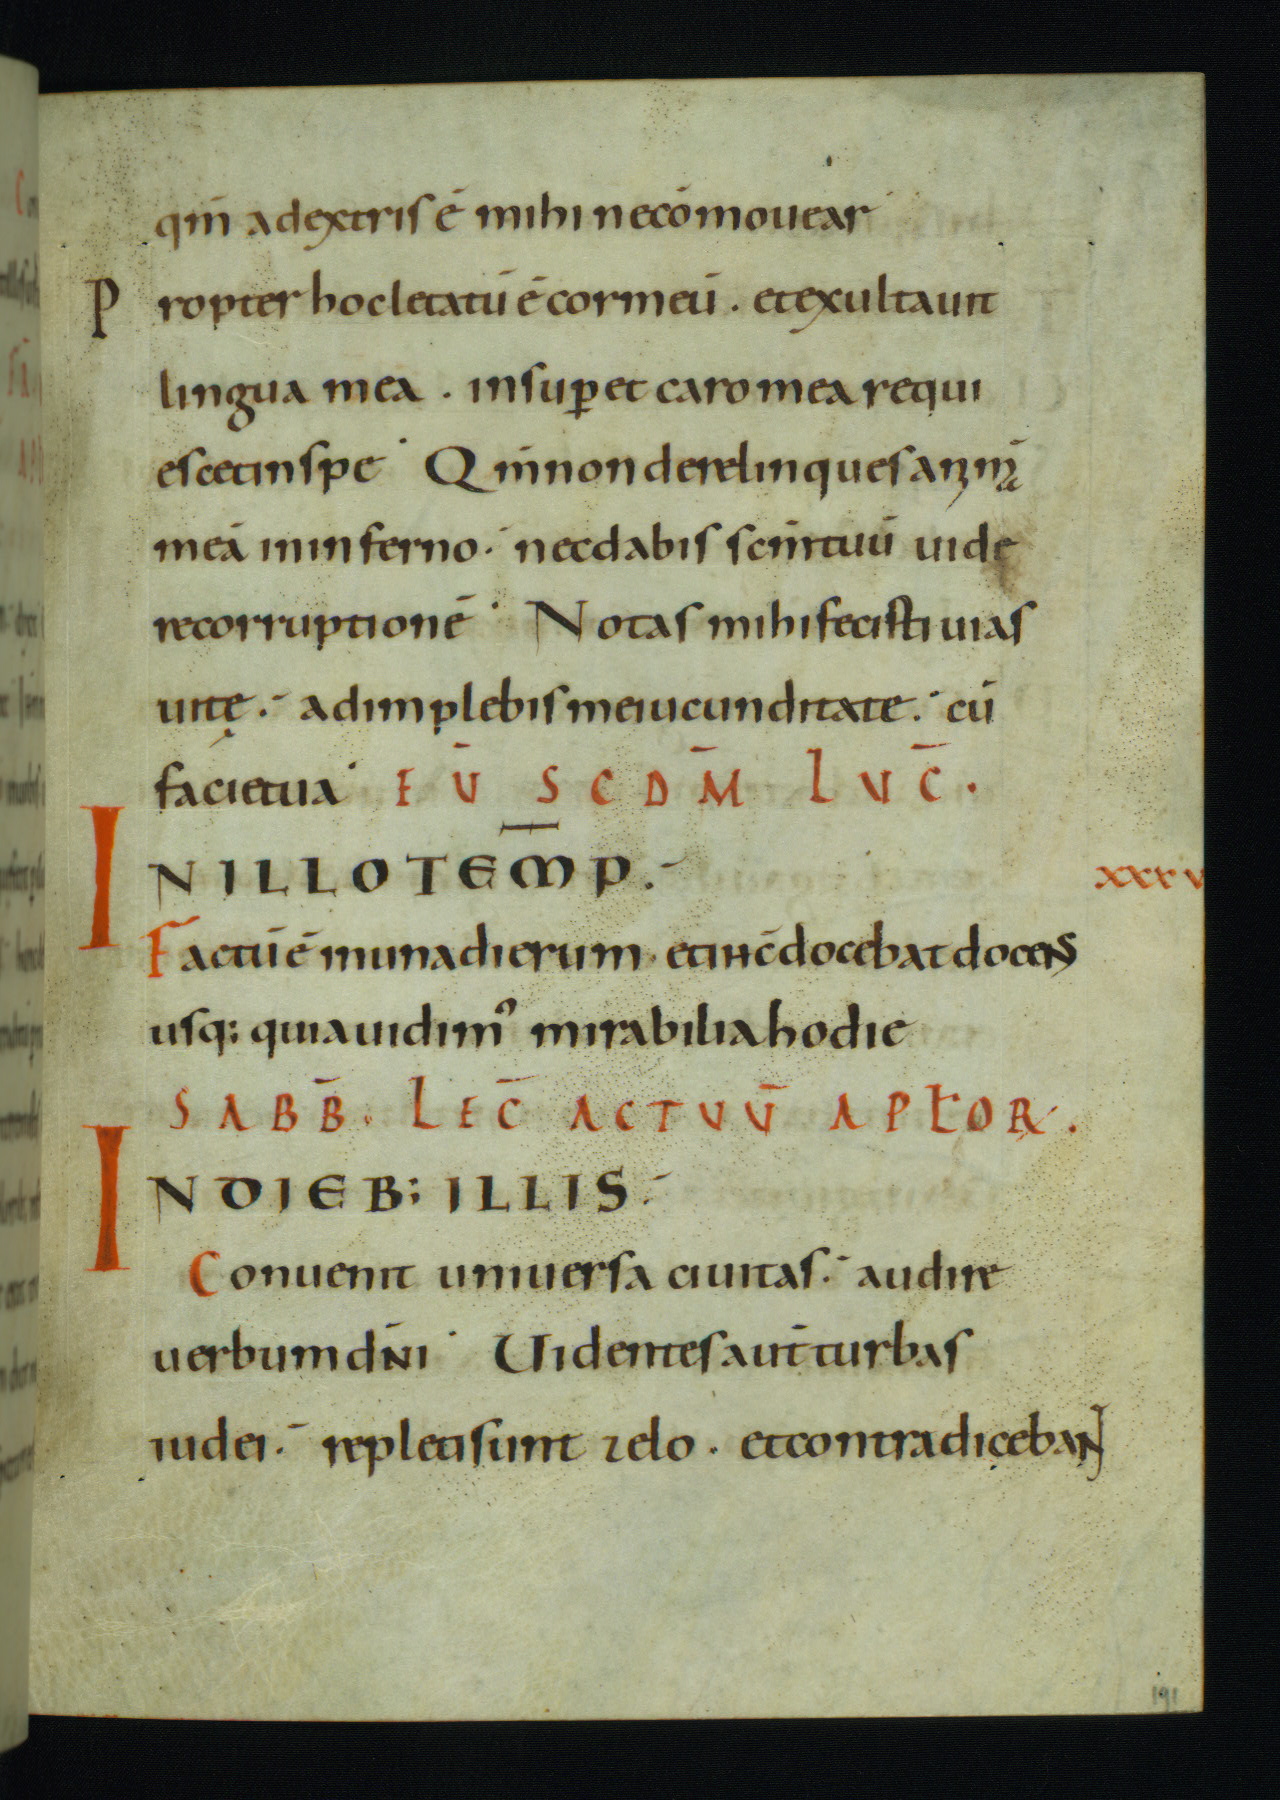 qm̄ adextris ē mihi necōmouear
Propter hoc letatū ē cor meū . et exultauit
lingua mea . insup̲ et caro mea requi
escet inspe Qm̄ non derelinques anim̄
meā in inferno . nec dabis scm̄ tuū uide
re corruptionē Notas mihi fecisti uias
uitę . adimplebis me iucunditate . cū
facie tua EŪ SCDM̄ LUC̄ .
IN ILLO TEMP̄ .
XXXV
Factū ē in una dierum . et ihc̄ docebat docens
usq; quia uidim᾿ mirabilia hodie
SABB̄ . LEC̄ ACTUŪ APŁOR .
IN DIEB; ILLIS .
Conuenit uniuersa ciuitas . audire
uerbum dn̄i Uidentes aut̄ turbas
iudei . repleti sunt zelo . et contradiceban
191